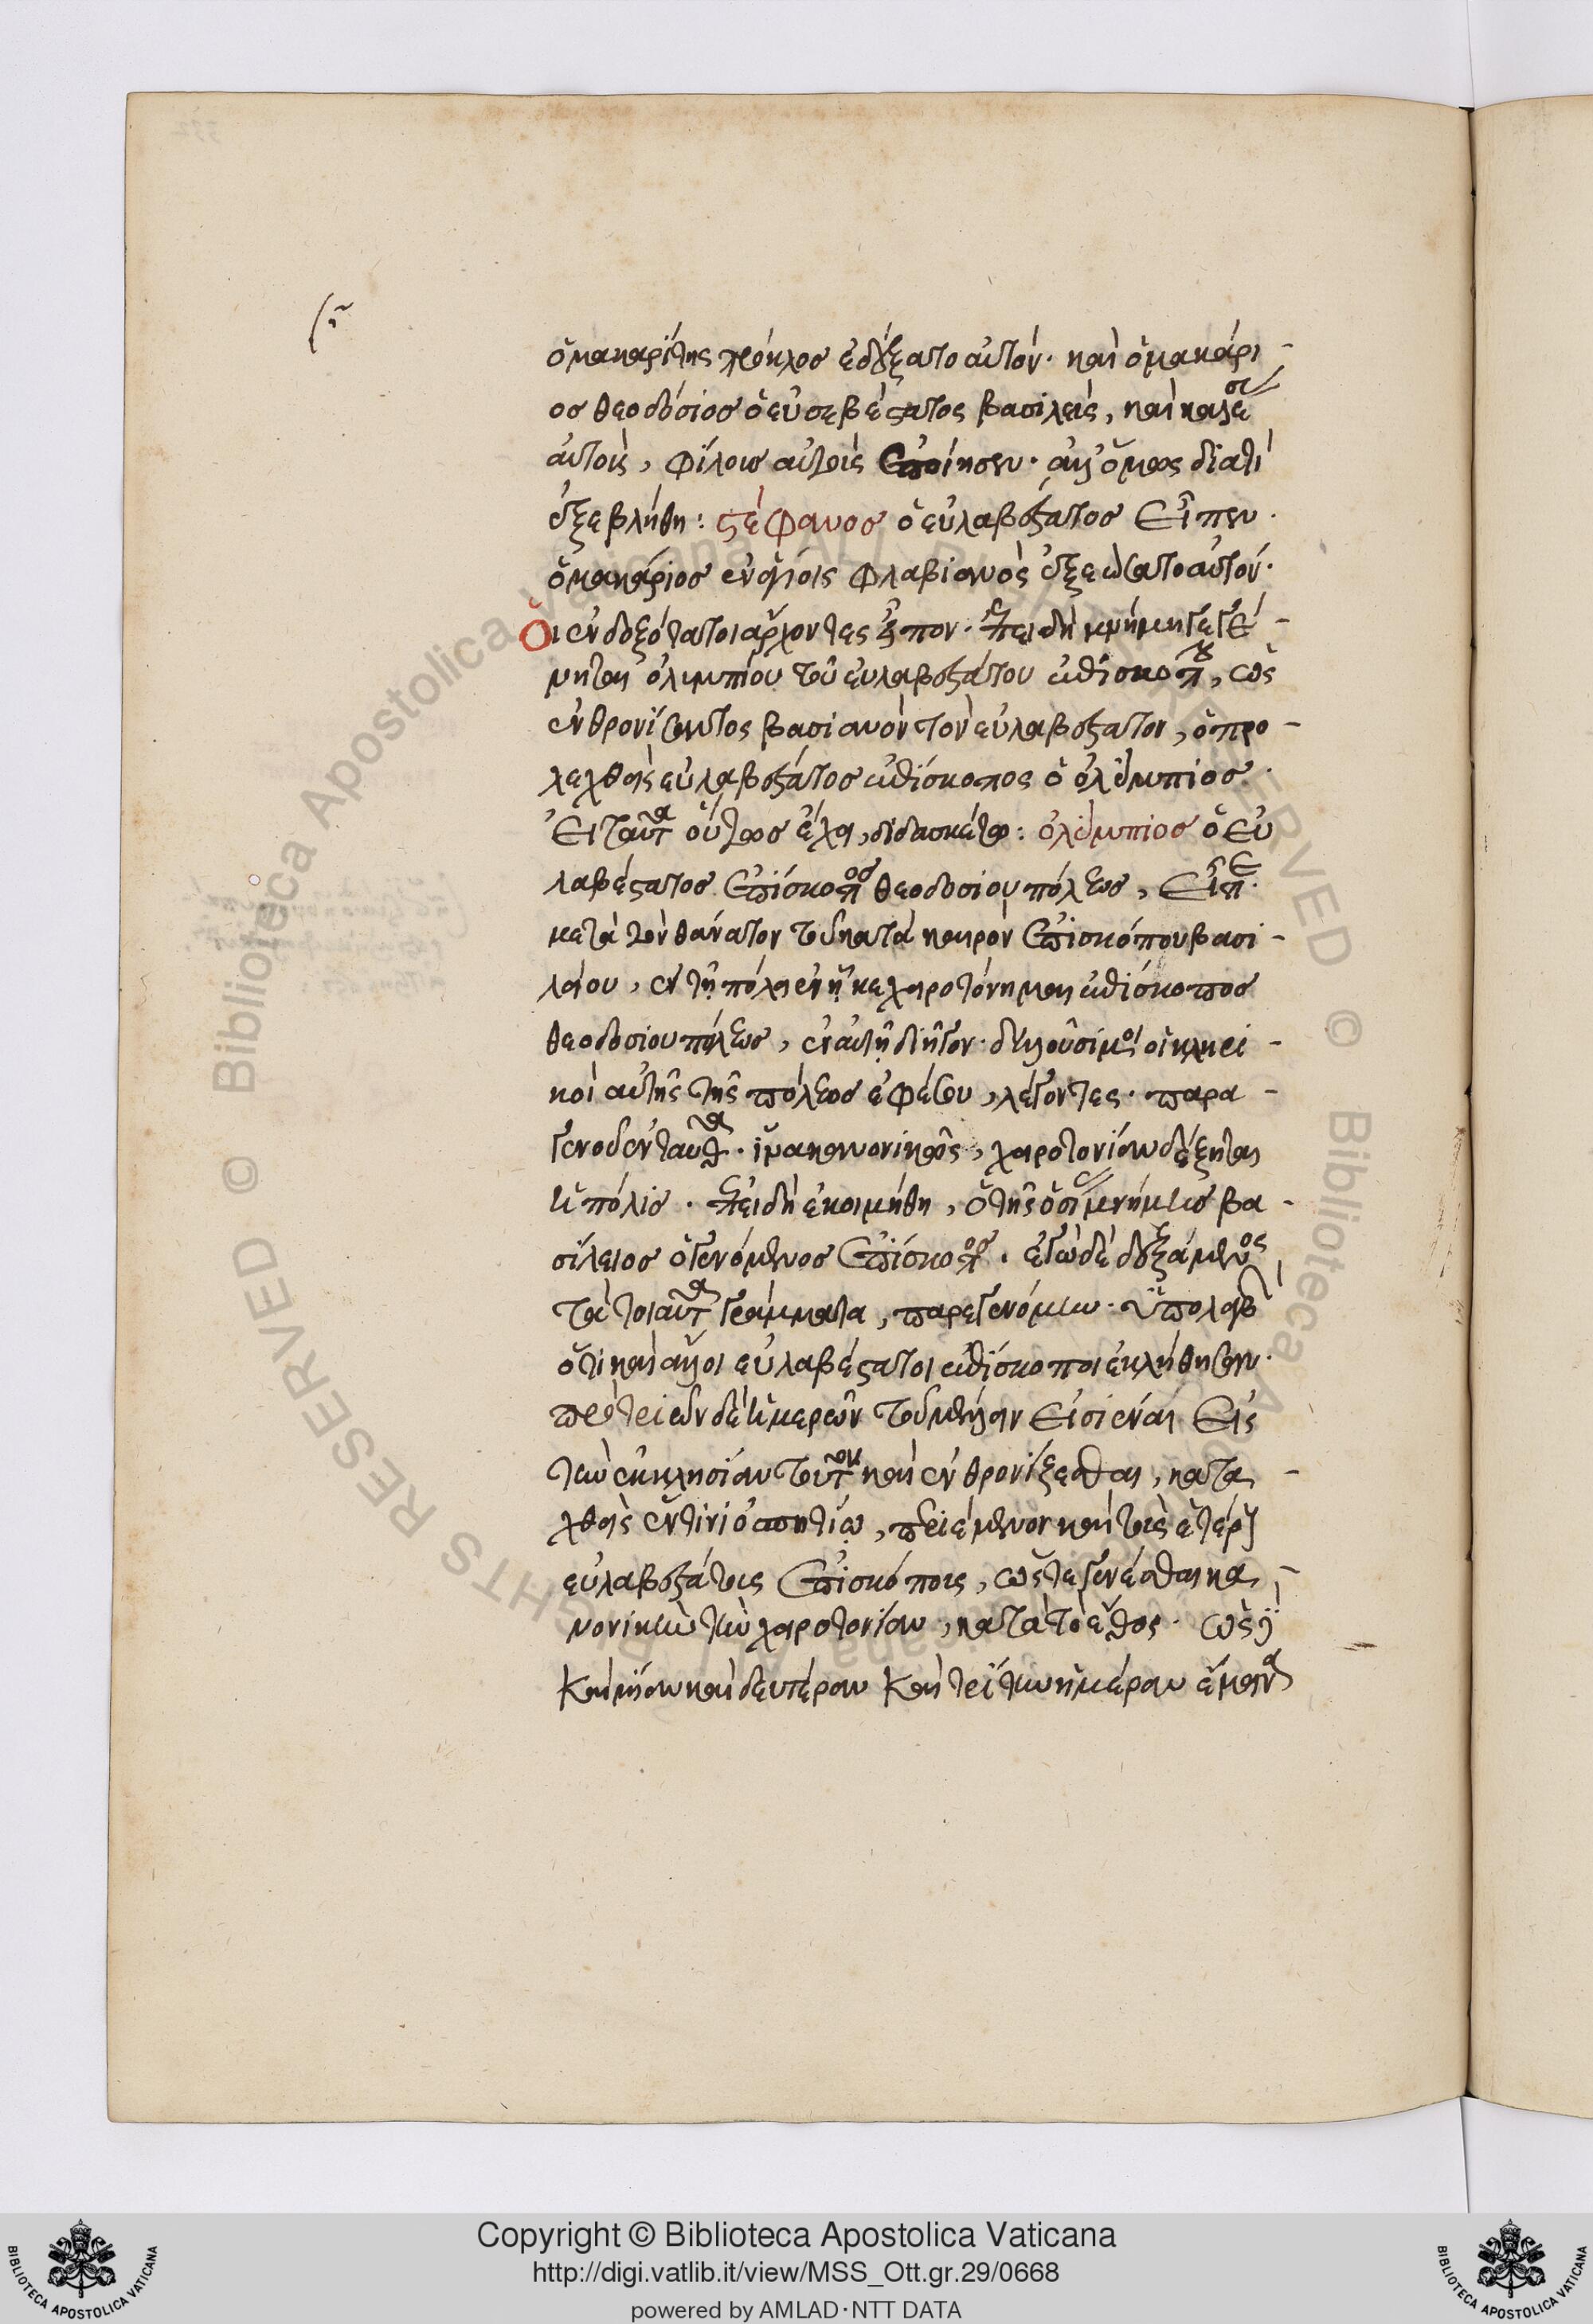 ὁ μακαρίτης πρόκλος ἐδέξατο αὐτόν· καὶ ὁ μακάρι-
ος θεοδόσιος ὁ εὐσεβέστατος βασιλεὺς, καὶ καλέσας
αὐτοὺς, φίλους αὐτοὺς ἐποίησεν· ἀλλ' ὅμως διατί
ἐξεβλήθη: στέφανος ὁ εὐλαβέστατος εἶπεν·
ὁ μακάριος ἐν ἁγίοις φλαβιανὸς ἐξεώσατο αὐτόν·
Οἱ ἐνδοξότατοι ἄρχοντες εἶπον· ἐπειδὴ μνήμη γεγέ-
νηται ὀλυμπίου τοῦ εὐλαβεστάτου ἐπισκόπου, ὡς
ἐνθρονίσαντος βασιανὸν τὸν εὐλαβέστατον, ὁ προ-
λεχθεὶς εὐλαβέστατος ἐπίσκοπος ὁ ὀλύμπιος·
εἰ ταῦτα οὕτως ἔχει, διδασκέτω: ὀλύμπιος ὁ εὐ
λαβέστατος ἐπίσκοπος θεοδοσίου πόλεως, εἶπε·
μετὰ τὸν θάνατον τοῦ κατὰ καιρὸν ἐπισκόπου βασι-
λείου, ἐν τῇ πόλει ἐν ᾗ κεχειροτόνημαι ἐπίσκοπος
θεοδοσίου πόλεως, ἐν αὐτῇ διῆγον· δηλοῦσί μοι οἱ κληρι-
κοὶ αὐτῆς τῆς πόλεως ἐφέσου, λέγοντες· παρα-
γενοῦ ἐνταῦθα· ἵνα κανονικῶς, χειροτονίαν δέξηται
ἡ πόλις· ἐπειδὴ ἐκοιμήθη, ὁ τῆς ὁσίας μνήμης βα-
σίλειος ὁ γενόμενος ἐπίσκοπος· ἐγὼ δὲ δεξάμενος
τὰ τοιαῦτα γράμματα, παρεγενόμην· ὑπολαβὼν
ὅτι καὶ ἄλλοι εὐλαβέστατοι ἐπίσκοποι ἐκλήθησαν·
πρὸ τριῶν δὲ ἡμερῶν τοῦ μέλλειν εἰσιέναι εἰς
τὴν ἐκκλησίαν τοῦτον καὶ ἐνθρονίζεσθαι, κατα-
χθεὶς ἔν τινι ὁσπητίῳ, περιέμενον καὶ τοὺς ἑτέρους
εὐλαβεστάτους ἐπισκόπους, ὥστε γενέσθαι κα-
νονικὴν τὴν χειροτονίαν, κατὰ τὸ ἔθος· ὡς δὲ
καὶ μίαν καὶ δευτέραν καὶ τρίτην ἡμέραν ἔμεινα
Copyright © Biblioteca Apostolica Vaticana
http://digi.vatlib.it/view/MSS_Ott.gr.29/0668
powered by AMLAD·NTT DATA